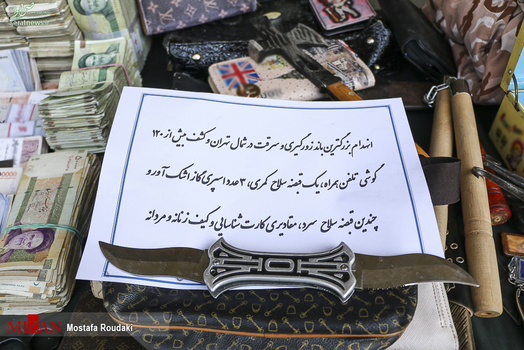 انهدام بزرگترین باند زورگیری و سرقت در شمال تهران و کشف بیش از ۱۲۰
گوشی تلفن همراه، یک قبضه سلاح کمری، ۳ عدد اسپری گاز اشک آور و
چندین قبضه سلاح سرد، مقادیری کارت شناسایی و کیف زنانه و مردانه
Mostafa Roudaki